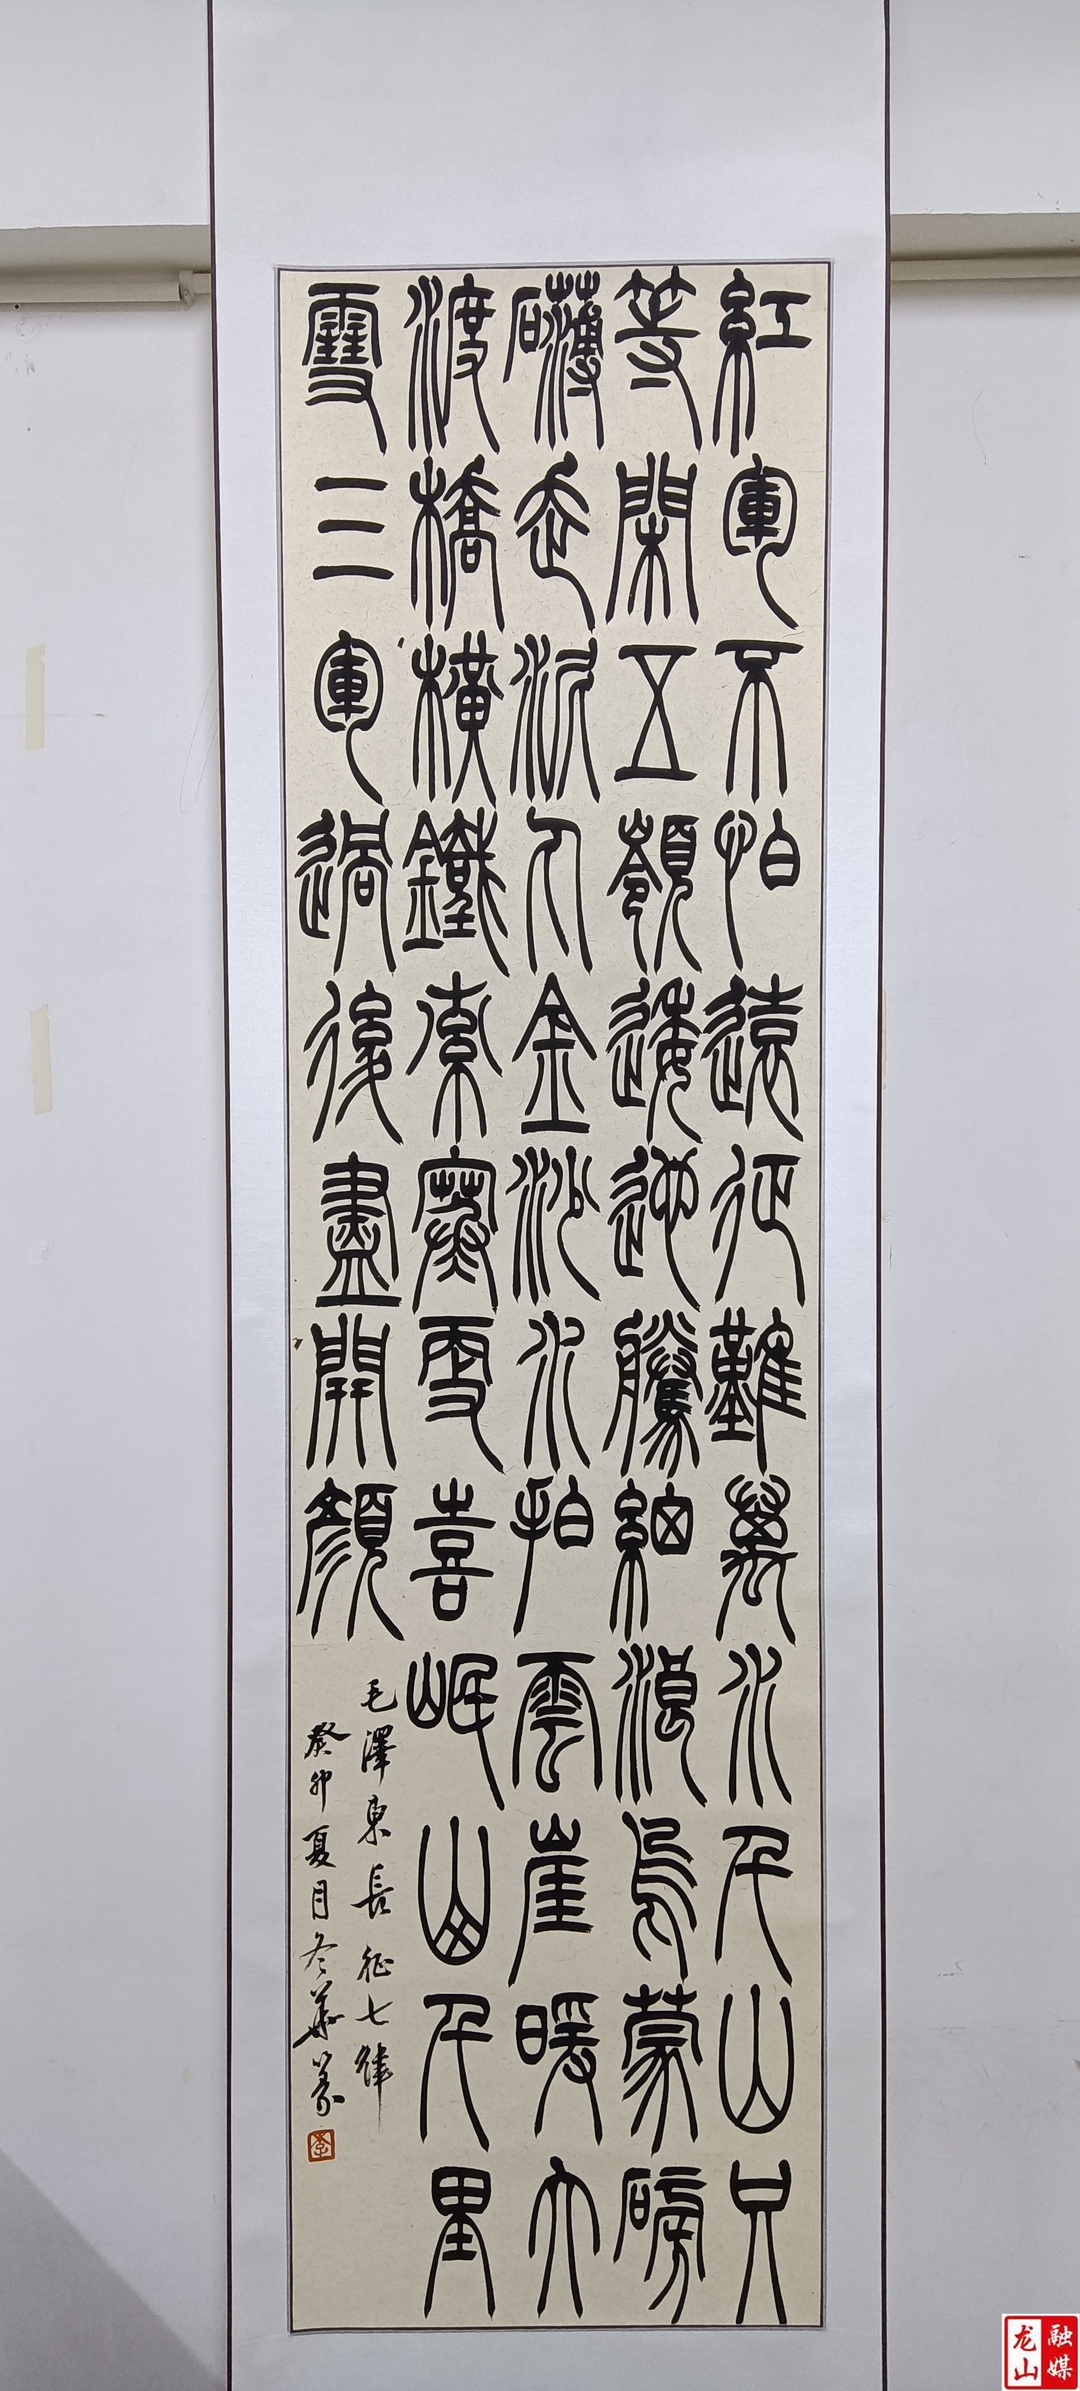 紅軍不怕遠征難萬水千山只
等閑五嶺逶迤騰細浪烏蒙磅
礴走泥丸金沙水拍雲崖暖大
渡橋橫鐵索寒更喜岷山千里
雪三軍過後盡開顏
毛澤東長征七律
癸卯夏月冬華篆
李
龙山
融媒